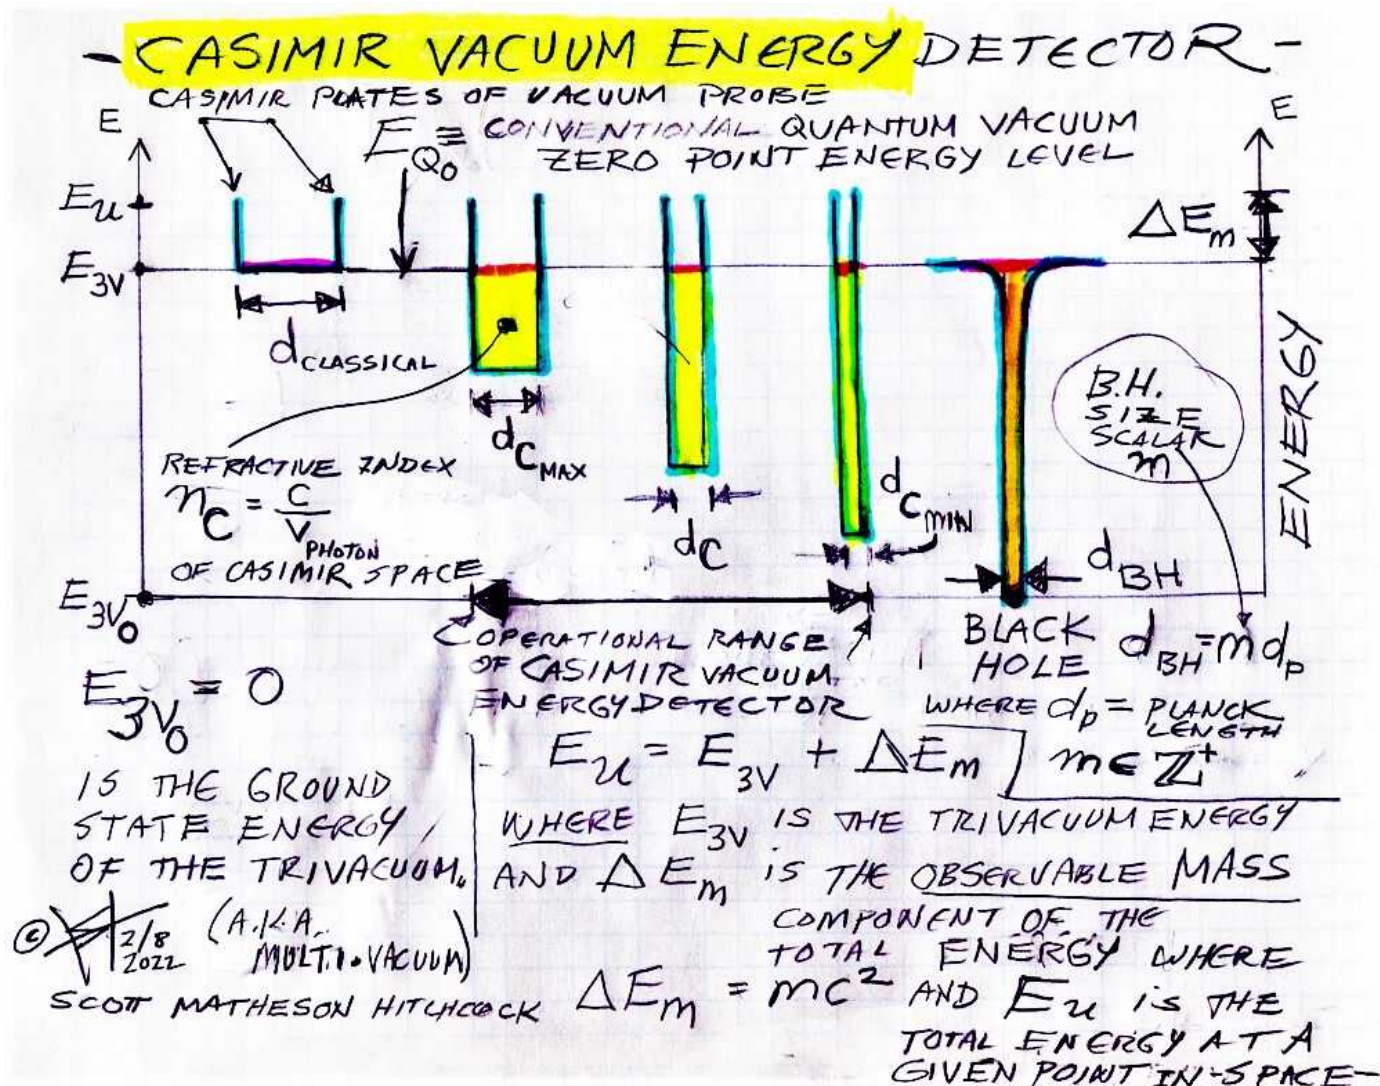 - CASIMIR VACUUM ENERGY DETECTOR -
CASIMIR PLATES OF VACUUM PROBE
E
E_Q0 ≡ CONVENTIONAL QUANTUM VACUUM
ZERO POINT ENERGY LEVEL
E
E_u
ΔE_m
E_3V
d_CLASSICAL
d_C_MAX
REFRACTIVE INDEX
n_C = c / v_PHOTON
OF CASIMIR SPACE
d_C
d_C_MIN
d_BH
B.H.
SIZE
SCALAR
m
ENERGY
E_3V_0
OPERATIONAL RANGE
OF CASIMIR VACUUM
ENERGY DETECTOR
BLACK
HOLE
d_BH = m d_p
WHERE d_p = PLANCK
LENGTH
m ∈ ℤ⁺
E_3V_0 = 0
IS THE GROUND
STATE ENERGY
OF THE TRIVACUUM.
(A.K.A.
MULTI-VACUUM)
© 2/8
2022
SCOTT MATHESON HITCHCOCK
E_u = E_3V + ΔE_m
WHERE E_3V IS THE TRIVACUUM ENERGY
AND ΔE_m IS THE OBSERVABLE MASS
COMPONENT OF THE
TOTAL ENERGY WHERE
ΔE_m = mc² AND E_u IS THE
TOTAL ENERGY AT A
GIVEN POINT IN-SPACE-